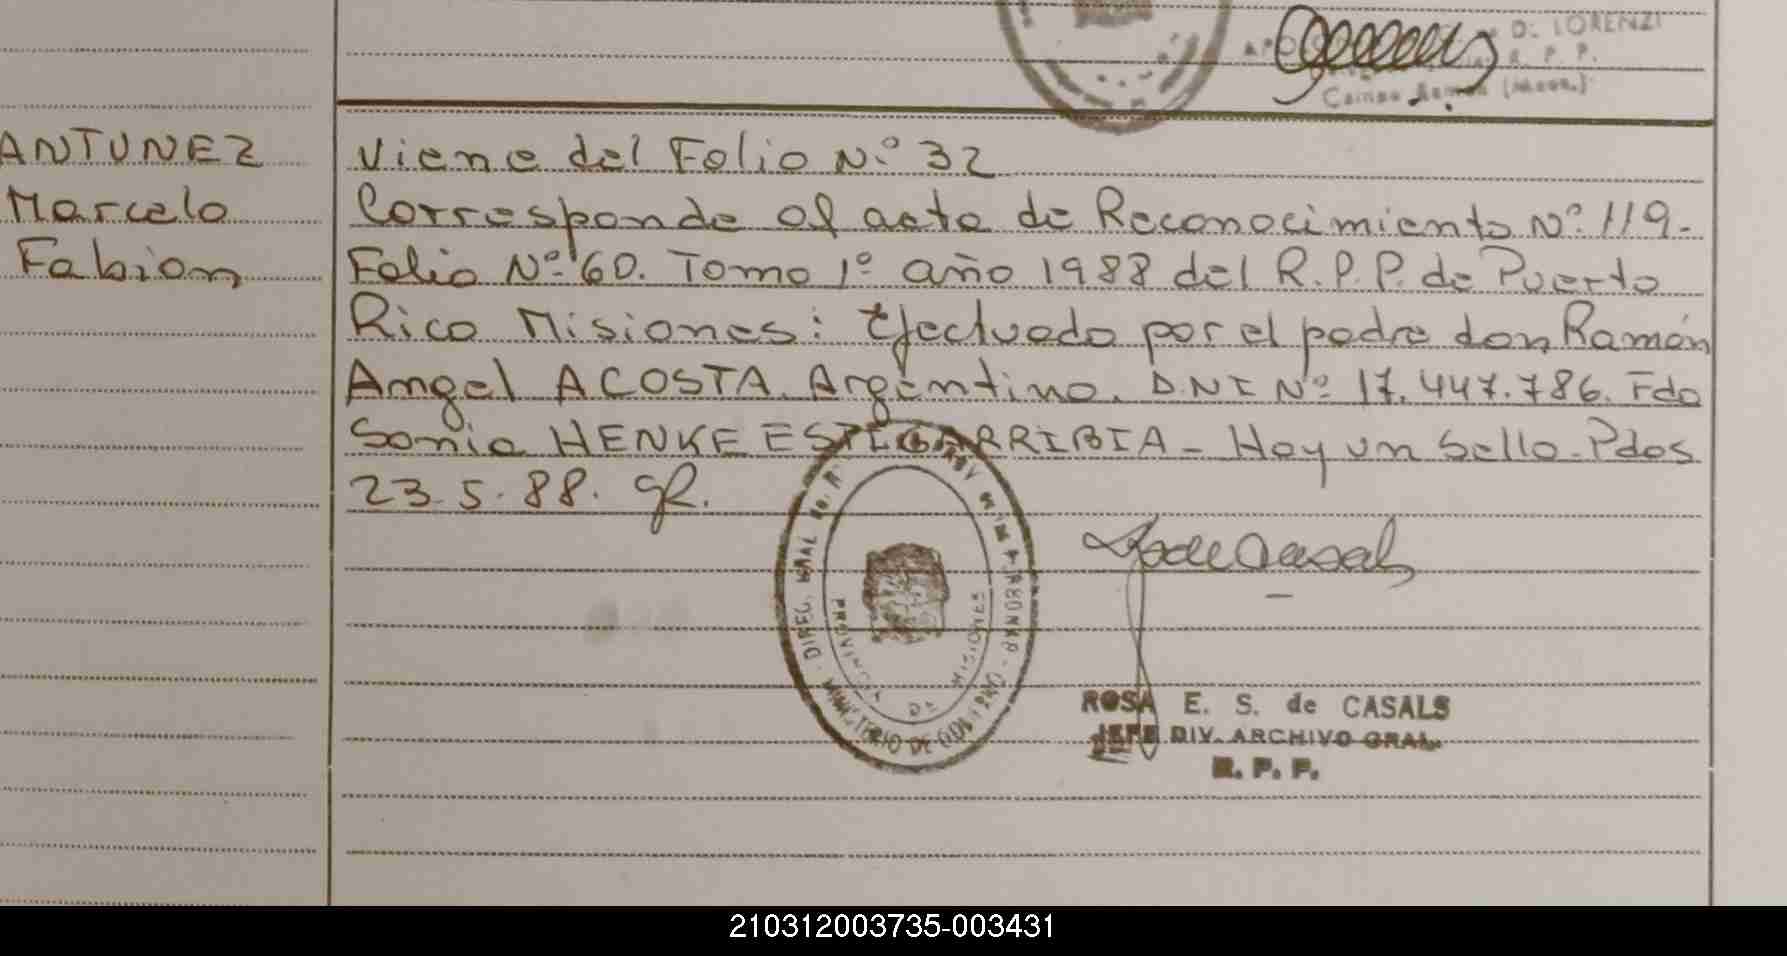 D: LORENZI
R. P. P.
ANTUNEZ
Marcelo
Fabian
Viene del Folio N.º 32
Corresponde al acta de Reconocimiento Nº 119.
Folio Nº 60. Tomo 1º año 1988 del R.P.P. de Puerto
Rico Misiones: Efectuado por el padre don Ramón
Angel ACOSTA. Argentino. D.N.I Nº 17.447.786. Fdo
Sonia HENKE ESTIGARRIBIA - Hay un Sello. Pdos
23.5.88. gR.
PROVINCIA DE MISIONES
MINISTERIO DE
ROSA E. S. de CASALS
JEFE DIV. ARCHIVO GRAL.
R. P. P.
210312003735-003431